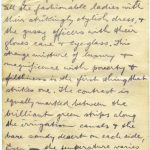 all the fashionable ladies with
their strikingly stylish dress, &
the gray officers with their
gloves cane & eyeglass. This
strange mixture of luxury
magnificence with poverty &
filthiness is the first thing that
strikes one. The contrast is
equally marked between the
brilliant green strips along
the irrigation canals & the
bare sandy desert on each side,
the temperature varies